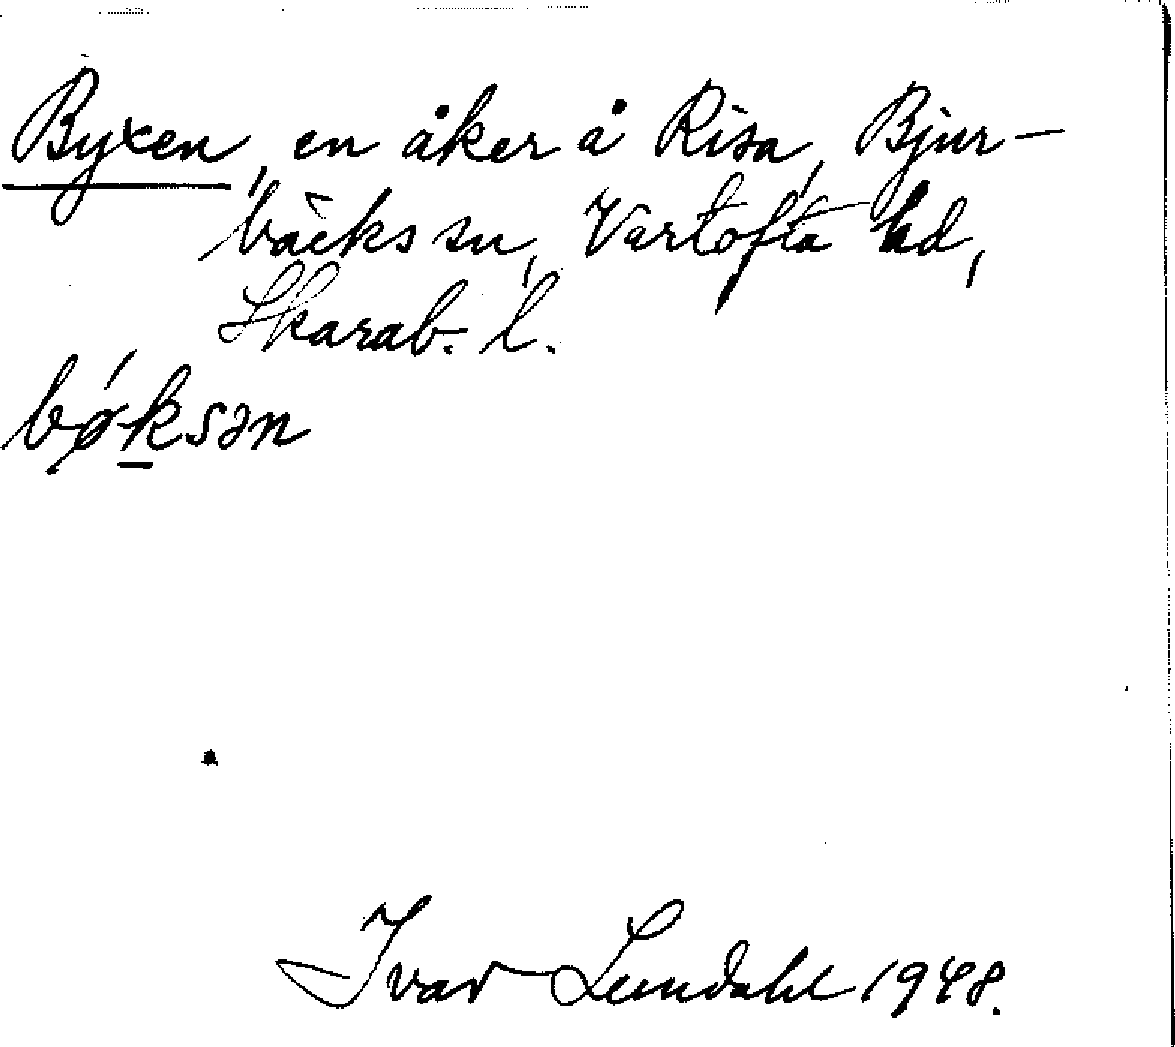 Byxen, en åker å Risa, Bjur-
bäcks sn, Vartofta hd,
Skarab. l.
bǿksən
Ivar Lundahl 1948.